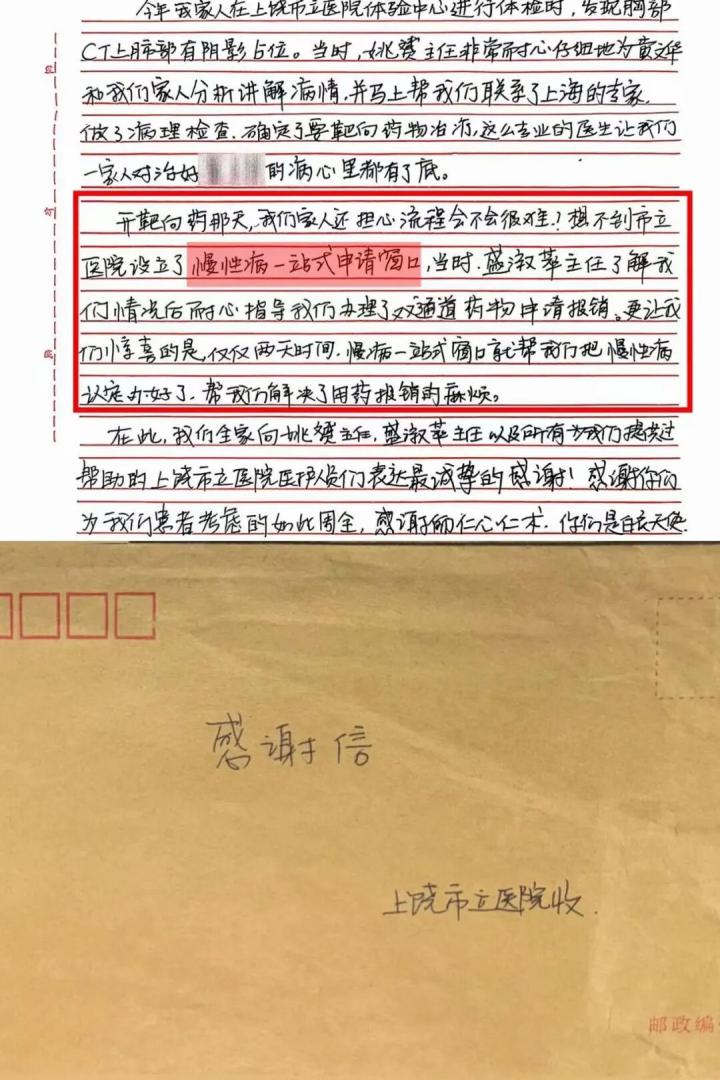 今年我家人在上饶市立医院体验中心进行体检时，发现胸部
CT上肺部有阴影占位。当时，姚赟主任非常耐心仔细地为黄
和我们家人分析讲解病情，并马上帮我们联系了上海的专家，
做了病理检查，确定了要靶向药物治疗，这么专业的医生让我们
一家人对治好 的病心里都有了底。
开靶向药那天，我们家人还担心流程会不会很难？想不到市立
医院设立了慢性病一站式申请窗口，当时，盛淑苹主任了解我
们情况后耐心指导我们办理了双通道药物申请报销。更让我
们惊喜的是，仅仅两天时间，慢病一站式窗口就帮我们把慢性病
认定办好了，帮我们解决了用药报销的麻烦。
在此，我们全家向姚赟主任，盛淑苹主任以及所有为我们提供过
帮助的上饶市立医院医护人员们表达最诚挚的感谢！感谢你们
为我们患者考虑的如此周全，感谢你们仁心仁术，你们是白衣天使
感谢信
上饶市立医院收.
邮政编